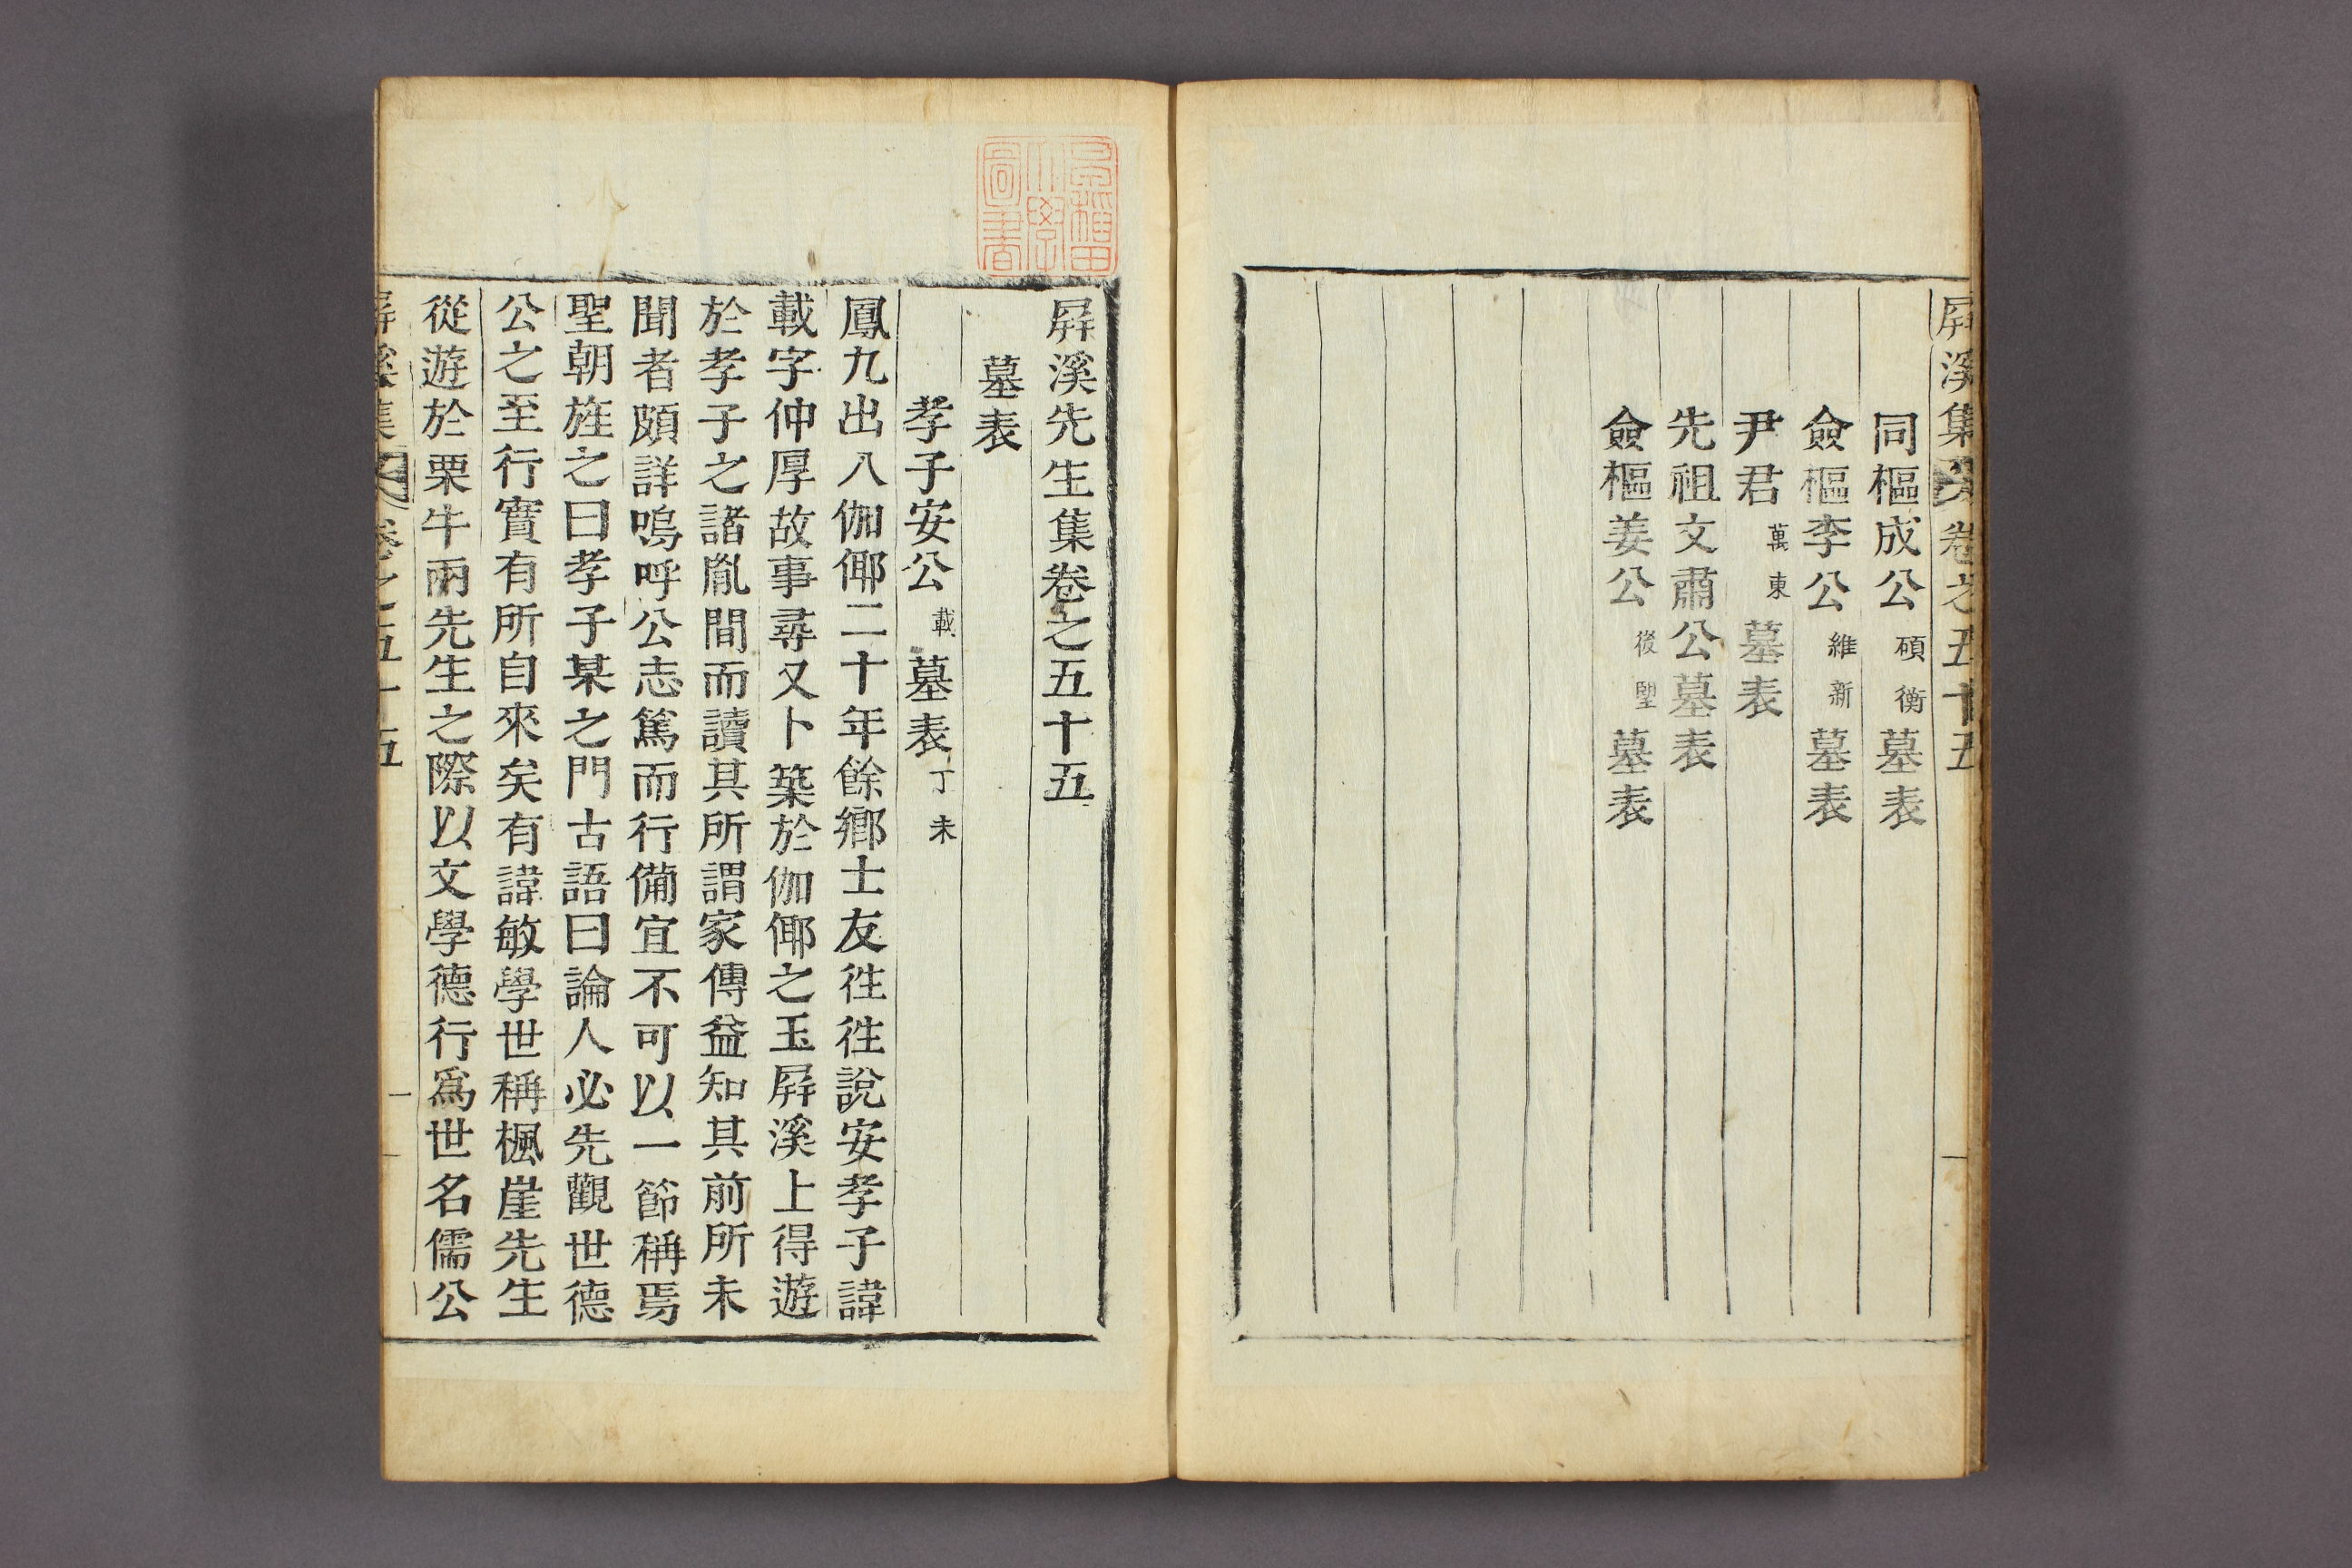 屛溪集 卷之五十五
同樞成公碩衡墓表
僉樞李公維新墓表
尹君萬東墓表
先祖文肅公墓表
僉樞姜公後墓表
早稻田
大學
圖書
屛溪先生集卷之五十五
墓表
孝子安公載墓表丁未
鳳九出入伽倻二十年餘鄕士友徃徃說安孝子諱
載字仲厚故事尋又卜築於伽倻之玉屛溪上得遊
於孝子之諸胤間而讀其所謂家傳益知其前所未
聞者頗詳嗚呼公志篤而行備宜不可以一節稱焉
聖朝旌之曰孝子某之門古語曰論人必先觀世德
公之至行實有所自來矣有諱敏學世稱楓崖先生
從遊於栗牛兩先生之際以文學德行爲世名儒公
屛溪集 卷之五十五 一